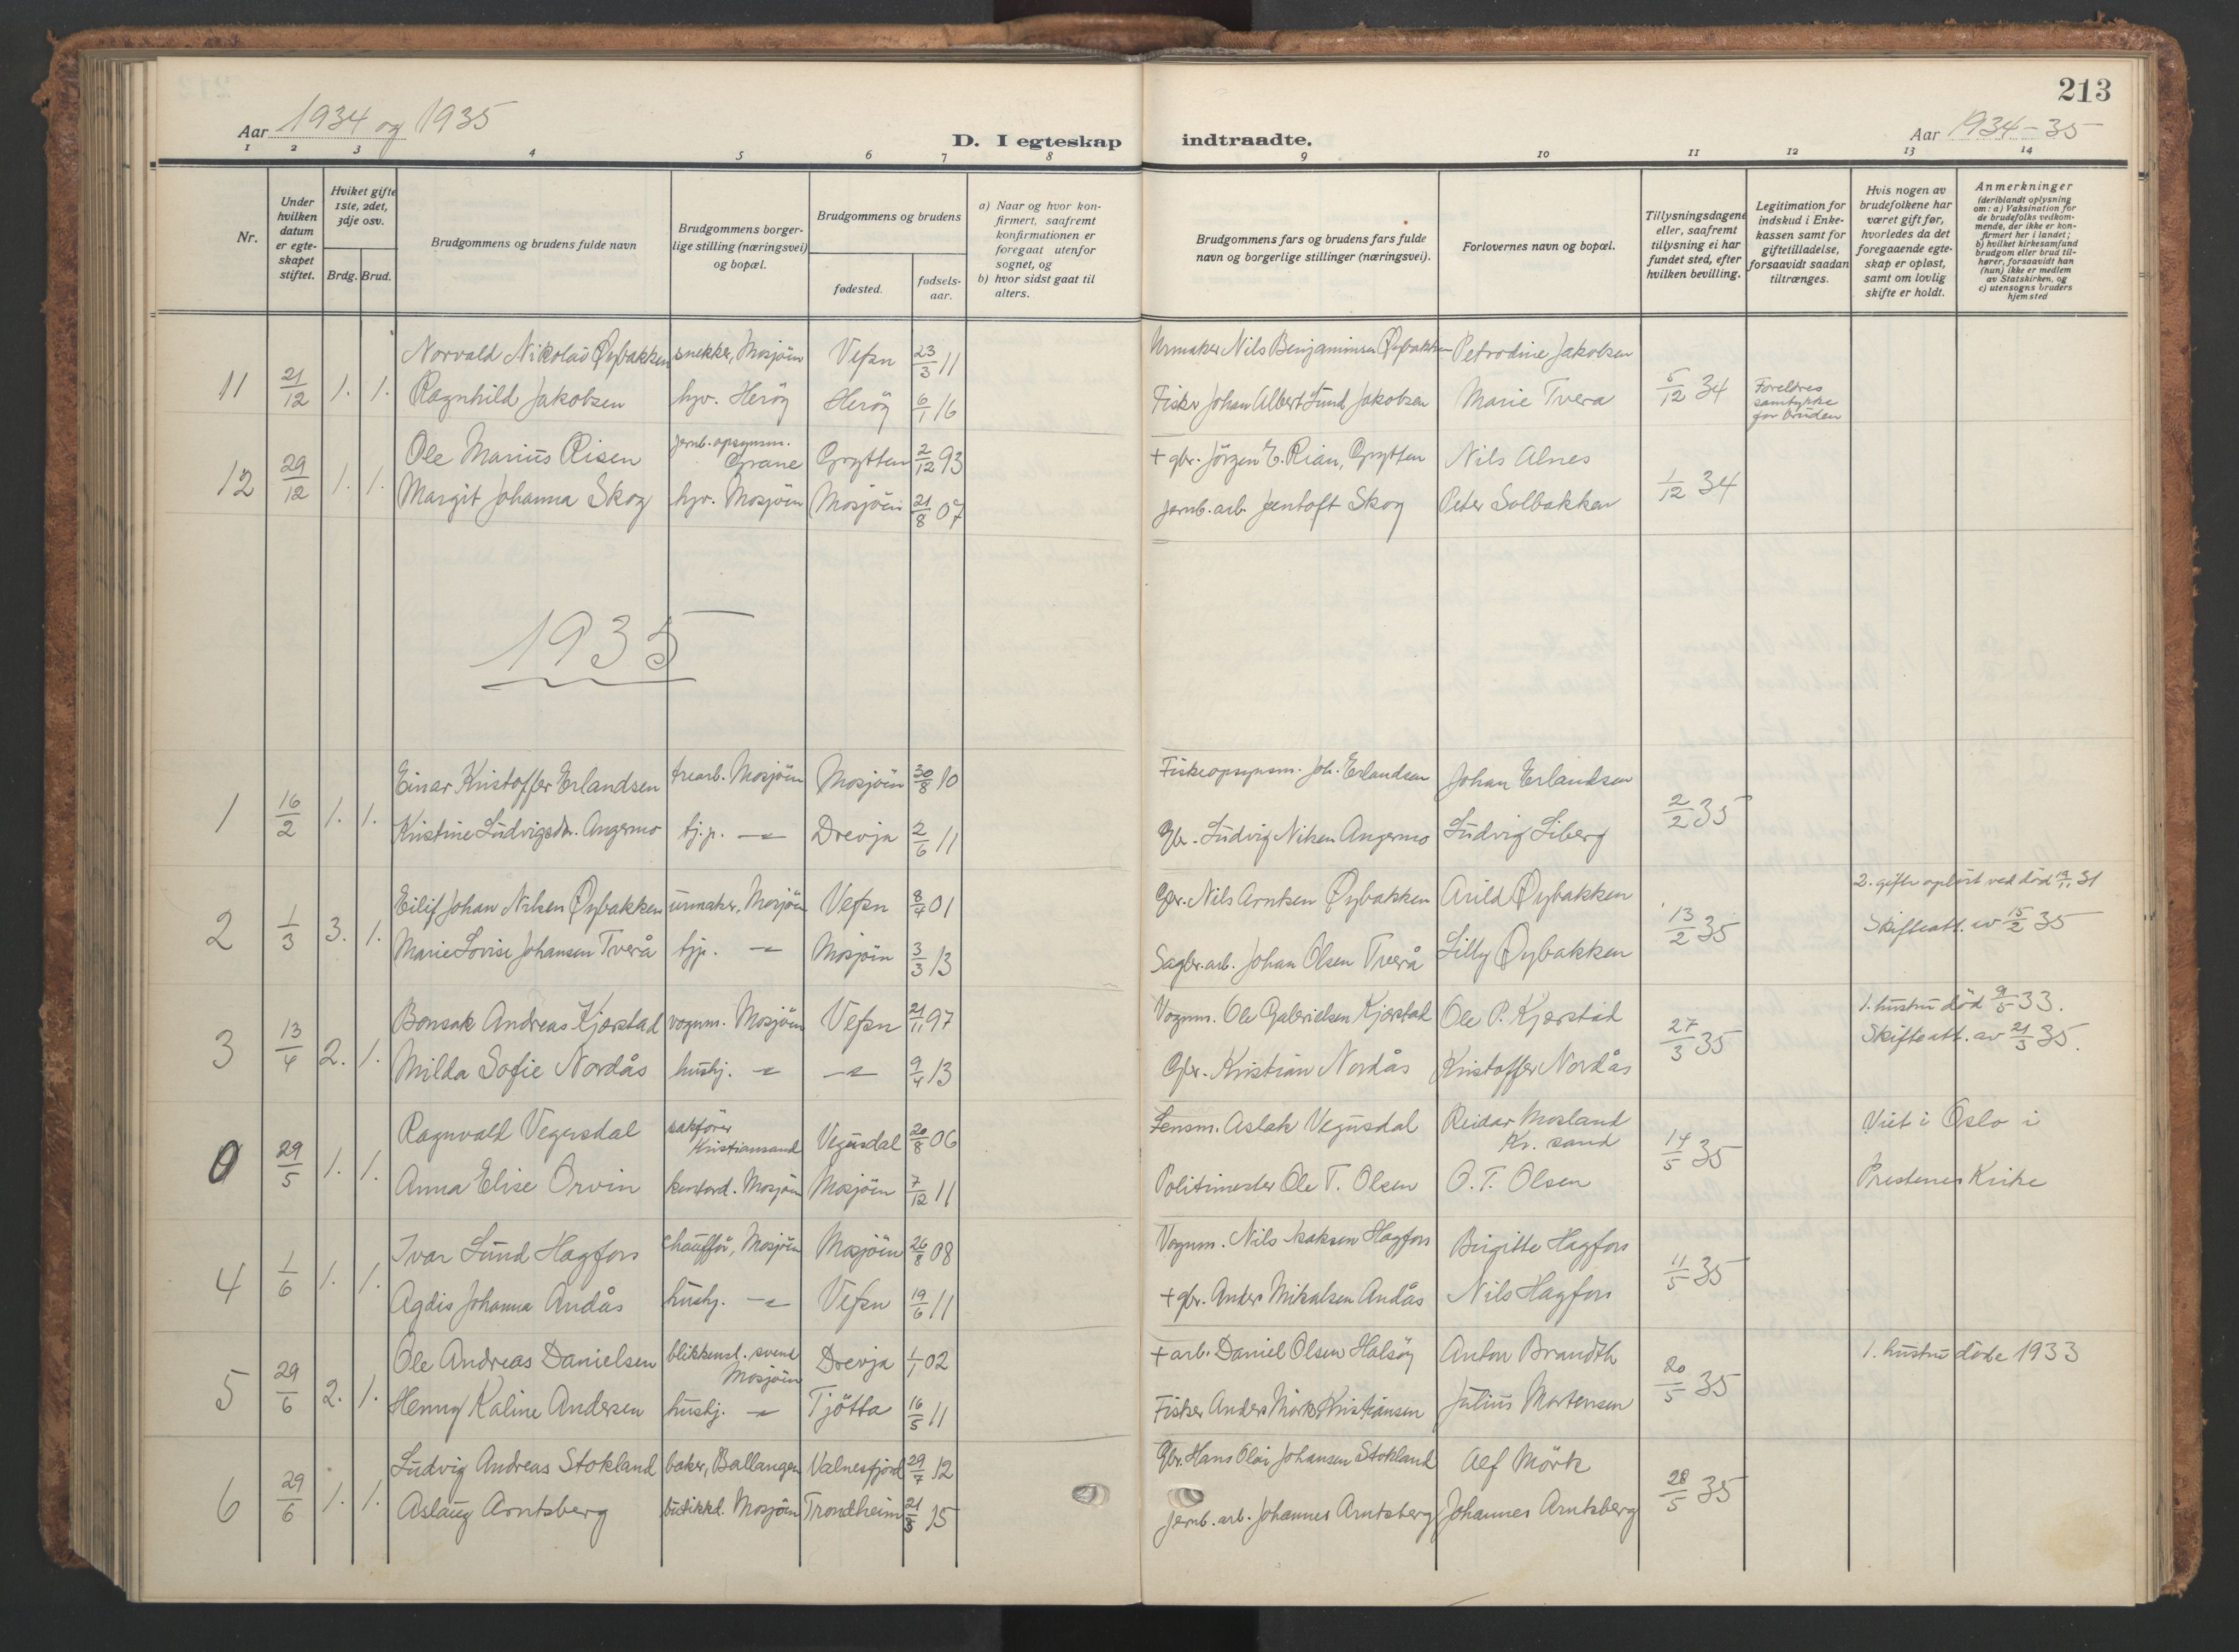 213
Aar 1934 og 1935
D. I egteskap indtraadte.
Aar 1934-35
1 2 3 4 5 6 7 8 9 10 11 12 13 14
Nr.
Under hvilken datum er egteskapet stiftet.
Hviket gifte 1ste, 2det, 3dje osv.
Brdg. Brud.
Brudgommens og brudens fulde navn
Brudgommens borgerlige stilling (næringsvei) og bopæl.
Brudgommens og brudens
fødested.
fødselsaar.
a) Naar og hvor konfirmert, saafremt konfirmationen er foregaat utenfor sognet, og
b) hvor sidst gaat til alters.
Brudgommens fars og brudens fars fulde navn og borgerlige stillinger (næringsvei).
Forlovernes navn og bopæl.
Tillysningsdagene eller, saafremt tillysning ei har fundet sted, efter hvilken bevilling.
Legitimation for indskud i Enkekassen samt for giftetilladelse, forsaavidt saadan tiltrænges.
Hvis nogen av brudefolkene har været gift før, hvorledes da det foregaaende egteskap er opløst, samt om lovlig skifte er holdt.
Anmerkninger (deriblandt oplysning om: a) Vaksination for de brudefolks vedkommende, der ikke er konfirmert her i landet; b) hvilket kirkesamfund brudgom eller brud tilhører, forsaavidt han (hun) ikke er medlem av Statskirken, og c) utensogns bruders hjemsted
Norvald Nikolai Øybakken snekker, Mosjöen Vefsn 23/3 11 Urmaker Nils Benjaminsen Øybakken Petrodine Jakobsen
11 21/12 1. 1. Ragnhild Jakobsen hjv. Heröy Heröy 6/1 16 Fisker Johan Albert Lund Jakobsen Marie Tvera 5/12 34 Foreldres samtykke for bruden
Ole Marius Risen jernb. opsynsm. Grane Grytten 2/12 93 + gbr. Jörgen E. Rian, Grytten Nils Alnes
12 29/12 1. 1. Margit Johanna Skog hjv. Mosjöen Mosjöen 21/8 07 jernb. arb. Jentoft Skog Peter Solbakken 1/12 34
1935
Einar Kristoffer Erlandsen trearb. Mosjöen Mosjöen 30/8 10 Fiskeopsynsm. Joh. Erlandsen Johan Erlandsen
1 16/2 1. 1. Kristine Ludvigsdr. Angermo tj.p. —"— Drevja 2/6 11 Gbr. Ludvig Nilsen Angermo Ludvig Liberg 2/2 35
Eilif Johan Nilsen Øybakken urmaker, Mosjöen Vefsn 8/4 01 Gbr. Nils Arntsen Øybakken Arild Øybakken 2. gifte oplöst ved död 31
2 1/3 3. 1. Marie Lovise Johansen Tverå tjp. —"— Mosjöen 3/3 13 Sagbr. arb. Johan Olsen Tverå Lilly Øybakken 13/2 35 Skifteatt. av 15/2 35
Bonsak Andreas Kjærstad vognm. Mosjöen Vefsn 21/11 97 Vognm. Ole Gabrielsen Kjærstad Ole P. Kjærstad 1. hustru död 9/5 33.
3 13/4 2. 1. Milda Sofie Nordås hushj. —"— —"— 9/4 13 Gbr. Kristian Nordås Kristoffer Nordås 27/3 35 Skifteatt. av 21/3 35.
Ragnvald Vegusdal sakförer Kristiansand Vegusdal 20/8 06 Lensm. Aslak Vegusdal Reidar Mosland Kr. sand Viet i Oslo i
0 29/5 1. 1. Anna Elise Orvin kontord. Mosjöen Mosjöen 7/12 11 Politimester Ole T. Olsen O. T. Olsen 14/5 35 Prestenes Kirke
Ivar Lund Hagfors chaufför, Mosjöen Mosjöen 26/8 08 Vognm. Nils Isaksen Hagfors Birgitte Hagfors
4 1/6 1. 1. Agdis Johanna Andås hushj. —"— Vefsn 19/6 11 + gbr. Anders Mikalsen Andås Nils Hagfors 11/5 35
Ole Andreas Danielsen blikkensl. svend Mosjöen Drevja 1/1 02 + arb. Daniel Olsen Halsöy Anton Brandth 1. hustru döde 1933
5 29/6 2. 1. Henny Kaline Andersen hushj. —"— Tjötta 16/5 11 Fisker Anders Mörk Kristiansen Julius Mortensen 20/5 35
Ludvig Andreas Stokland baker, Ballangen Valnesfjord 29/7 12 Gbr. Hans Olai Johansen Stokland Alf Mörk
6 29/6 1. 1. Aslaug Arntsberg butikkd. Mosjöen Trondheim 15 Jernb. arb. Johannes Arntsberg Johannes Arntsberg 28/5 35